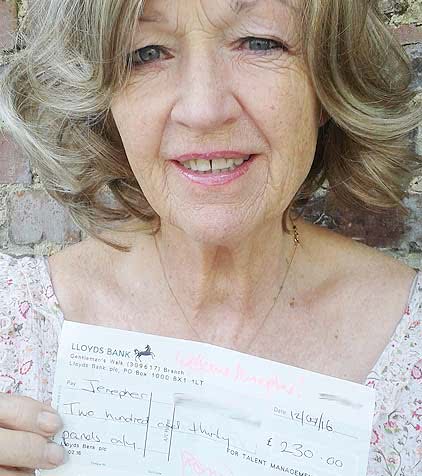 LLOYDS BANK
Gentleman's Walk (309617) Branch
Lloyds Bank plc, PO Box 1000 BX1 1LT
Date 12/07/16
Pay Jenepher
Two hundred and thirty
pounds only
£ 230.00
FOR TALENT MANAGEMENT
Lloyds Bank plc
02.16